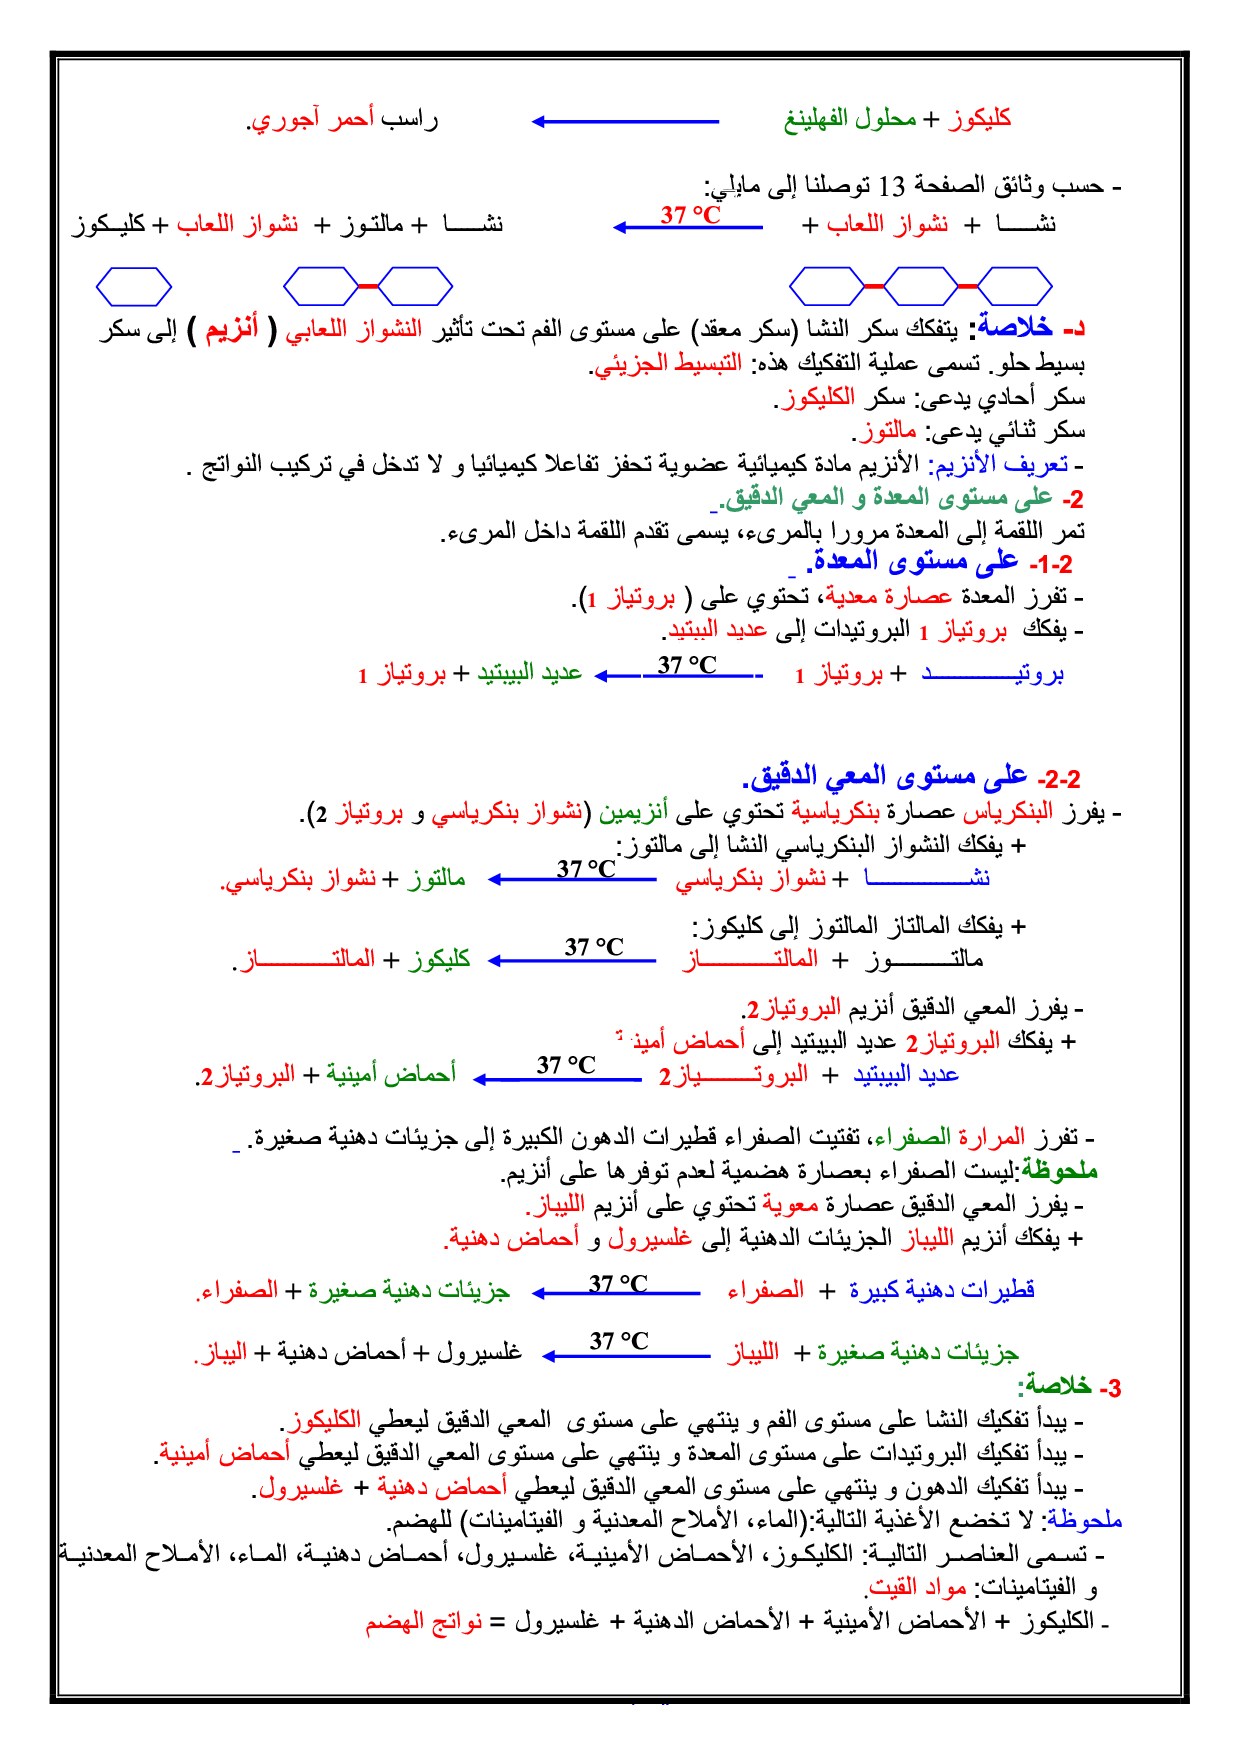 كليكوز + محلول الفهلينغ ← راسب أحمر آجوري.
- حسب وثائق الصفحة 13 توصلنا إلى مايلي:
نشا + نشواز اللعاب + ← 37 °C نشا + مالتوز + نشواز اللعاب + كليكوز
د- خلاصة: يتفكك سكر النشا (سكر معقد) على مستوى الفم تحت تأثير النشواز اللعابي ( أنزيم ) إلى سكر
بسيط حلو. تسمى عملية التفكيك هذه: التبسيط الجزيئي.
سكر أحادي يدعى: سكر الكليكوز.
سكر ثنائي يدعى: مالتوز.
- تعريف الأنزيم: الأنزيم مادة كيميائية عضوية تحفز تفاعلا كيميائيا و لا تدخل في تركيب النواتج .
2- على مستوى المعدة و المعي الدقيق.
تمر اللقمة إلى المعدة مرورا بالمرىء، يسمى تقدم اللقمة داخل المرىء.
2-1- على مستوى المعدة.
- تفرز المعدة عصارة معدية، تحتوي على ( بروتياز 1).
- يفكك بروتياز 1 البروتيدات إلى عديد الببتيد.
بروتيد + بروتياز 1 ← 37 °C عديد البيبتيد + بروتياز 1
2-2- على مستوى المعي الدقيق.
- يفرز البنكرياس عصارة بنكرياسية تحتوي على أنزيمين (نشواز بنكرياسي و بروتياز 2).
+ يفكك النشواز البنكرياسي النشا إلى مالتوز:
نشا + نشواز بنكرياسي ← 37 °C مالتوز + نشواز بنكرياسي.
+ يفكك المالتاز المالتوز إلى كليكوز:
مالتوز + المالتاز ← 37 °C كليكوز + المالتاز.
- يفرز المعي الدقيق أنزيم البروتياز2.
+ يفكك البروتياز2 عديد البيبتيد إلى أحماض أمينية
عديد البيبتيد + البروتياز2 ← 37 °C أحماض أمينية + البروتياز2.
- تفرز المرارة الصفراء، تفتيت الصفراء قطيرات الدهون الكبيرة إلى جزيئات دهنية صغيرة.
ملحوظة:ليست الصفراء بعصارة هضمية لعدم توفرها على أنزيم.
- يفرز المعي الدقيق عصارة معوية تحتوي على أنزيم الليباز.
+ يفكك أنزيم الليباز الجزيئات الدهنية إلى غلسيرول و أحماض دهنية.
قطيرات دهنية كبيرة + الصفراء ← 37 °C جزيئات دهنية صغيرة + الصفراء.
جزيئات دهنية صغيرة + الليباز ← 37 °C غلسيرول + أحماض دهنية + اليباز.
3- خلاصة:
- يبدأ تفكيك النشا على مستوى الفم و ينتهي على مستوى المعي الدقيق ليعطي الكليكوز.
- يبدأ تفكيك البروتيدات على مستوى المعدة و ينتهي على مستوى المعي الدقيق ليعطي أحماض أمينية.
- يبدأ تفكيك الدهون و ينتهي على مستوى المعي الدقيق ليعطي أحماض دهنية + غلسيرول.
ملحوظة: لا تخضع الأغذية التالية:(الماء، الأملاح المعدنية و الفيتامينات) للهضم.
- تسمى العناصر التالية: الكليكوز، الأحماض الأمينية، غلسيرول، أحماض دهنية، الماء، الأملاح المعدنية
و الفيتامينات: مواد القيت.
- الكليكوز + الأحماض الأمينية + الأحماض الدهنية + غلسيرول = نواتج الهضم